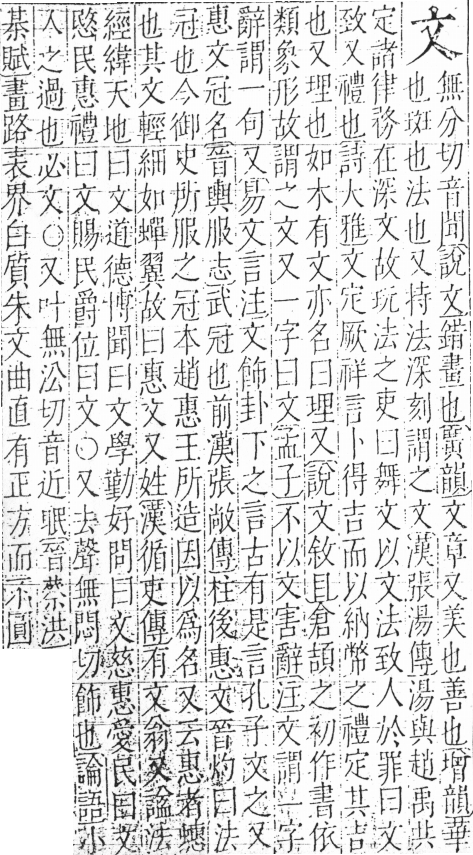 文無分切音聞說文錯畫也廣韻文章又美也善也增韻華
也斑也法也又持法深刻謂之文漢張湯傳湯與趙禹共
定諸律務在深文故玩法之吏曰舞文以文法致人於罪曰文
致又禮也詩大雅文定厥祥言卜得吉而以納幣之禮定其吉
也又理也如木有文亦名曰理又說文敘且倉頡之初作書依
類象形故謂之文又一字曰文孟子不以文害辭注文謂一字
辭謂一句又易文言注文飾卦下之言古有是言孔子文之又
惠文冠名晉輿服志武冠也前漢張敞傳柱後惠文晉灼曰法
冠也今御史所服之冠本趙惠王所造因以爲名又云惠者蟪
也其文輕細如蟬翼故曰惠文又姓漢循吏傳有文翁又諡法
經緯天地曰文道德博聞曰文學勤好問曰文慈惠愛民曰文
愍民惠禮曰文賜民爵位曰文○又去聲無悶切飾也論語小
人之過也必文○又叶無㳂切音近眠晉蔡洪
棊賦畫路表界白質朱文曲直有正方而不圓